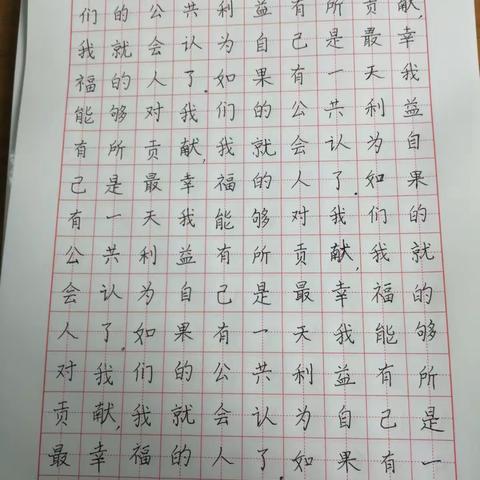 们的公共利益有所贡献，
我就会认为自己是最幸
福的人了。如果有一天我
能够对我们的公共利益
有所贡献，我就会认为自
己是最幸福的人了。如果
有一天我能够对我们的
公共利益有所贡献，我就
会认为自己是最幸福的
人了。如果有一天我能够
对我们的公共利益有所
贡献，我就会认为自己是
最幸福的人了。如果有一